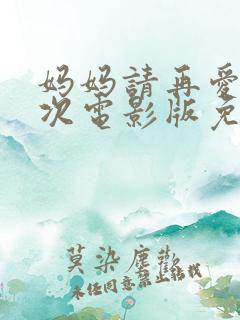 妈妈請再爱
次電影版免
莫染塵歡
未经同意禁止转载